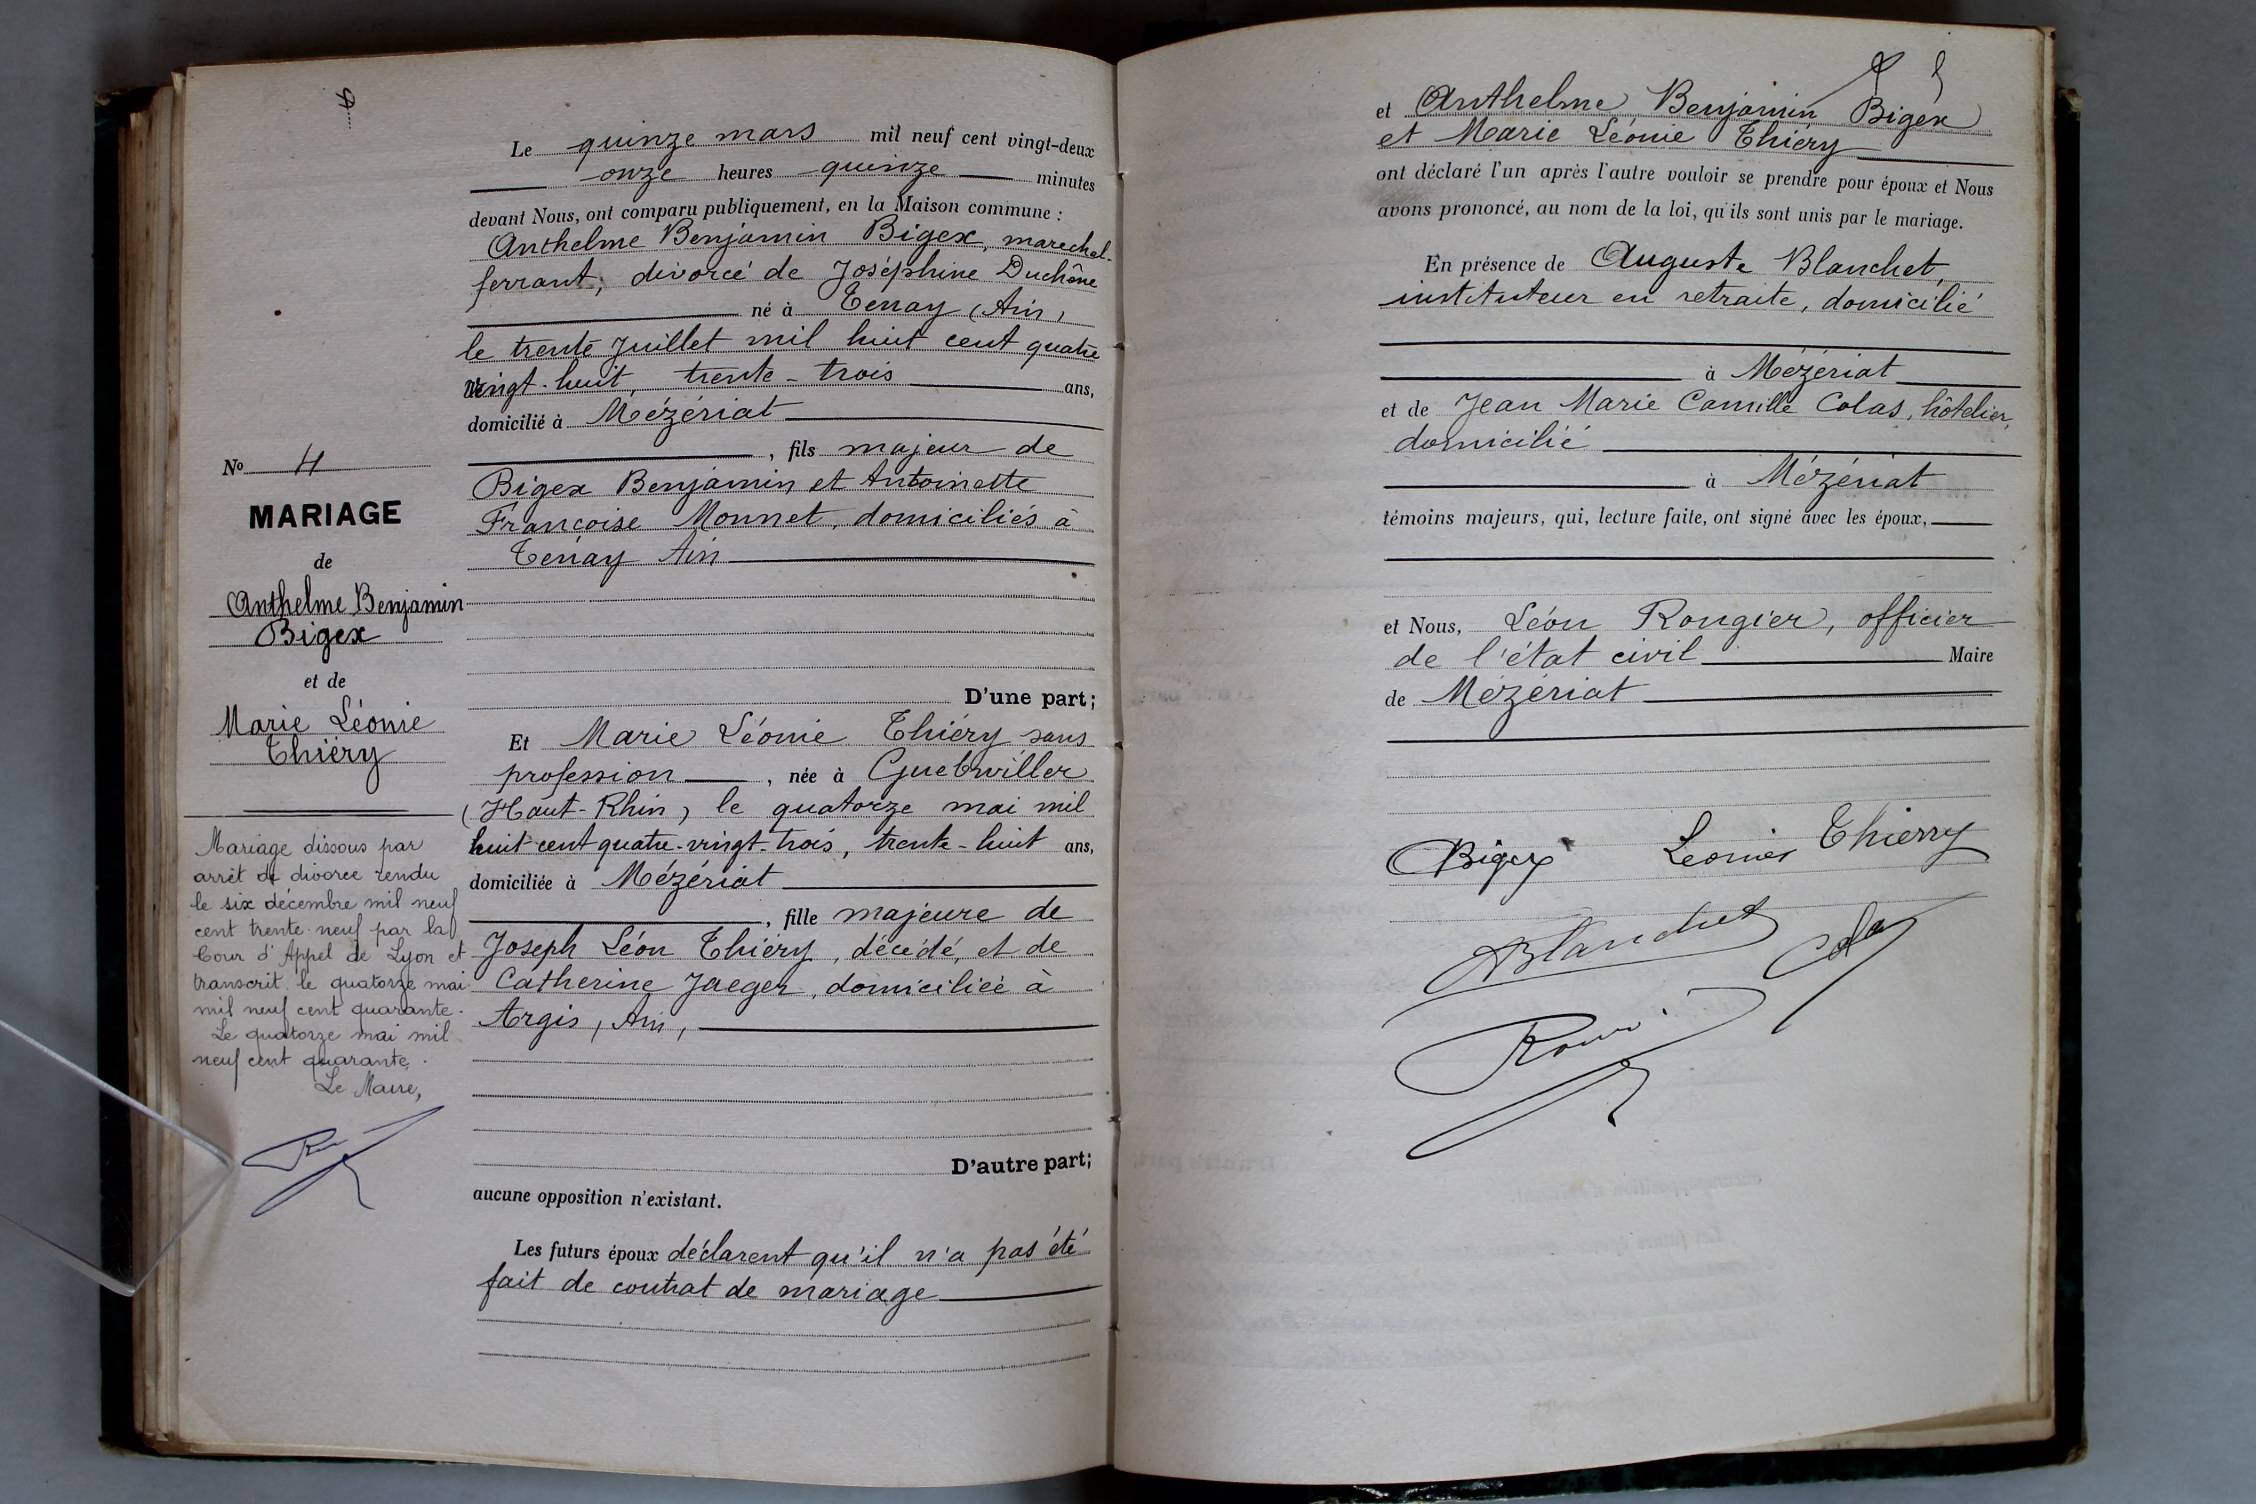 4
Le quinze mars mil neuf cent vingt-deux
onze heures quinze minutes
devant Nous, ont comparu publiquement, en la Maison commune :
Anthelme Benjamin Bigex, marechal-
ferrant, divorcé de Joséphine Duchêne
né à Tenay (Ain)
le trente Juillet mil huit cent quatre
vingt-huit, trente-trois ans,
domicilié à Mézériat
, fils majeur de
Bigex Benjamin et Antoinette
Françoise Monnet, domiciliés à
Tenay Ain
D'une part;
Et Marie Léonie Thiéry sans
profession , née à Guebwiller
(Haut-Rhin) le quatorze mai mil
huit cent quatre-vingt-trois, trente-huit ans,
domiciliée à Mézériat
, fille majeure de
Joseph Léon Thiéry, décédé, et de
Catherine Jaeger, domiciliée à
Argis, Ain,
D'autre part;
aucune opposition n'existant.
Les futurs époux déclarent qu'il n'a pas été
fait de contrat de mariage
No 4
MARIAGE
de
Anthelme Benjamin
Bigex
et de
Marie Léonie
Thiéry
Mariage dissous par
arrêt de divorce rendu
le six décembre mil neuf
cent trente-neuf par la
Cour d'Appel de Lyon et
transcrit le quatorze mai
mil neuf cent quarante.
Le quatorze mai mil
neuf cent quarante.
Le Maire,
5
et Anthelme Benjamin Bigex
et Marie Léonie Thiéry
ont déclaré l'un après l'autre vouloir se prendre pour époux et Nous
avons prononcé, au nom de la loi, qu'ils sont unis par le mariage.
En présence de Auguste Blanchet,
instituteur en retraite, domicilié
à Mézériat
et de Jean Marie Camille Colas, hôtelier,
domicilié
à Mézériat
témoins majeurs, qui, lecture faite, ont signé avec les époux,
et Nous, Léon Rougier, officier
de l'état civil Maire
de Mézériat
Bigex Leonie Thierry
ABlanchet Colas